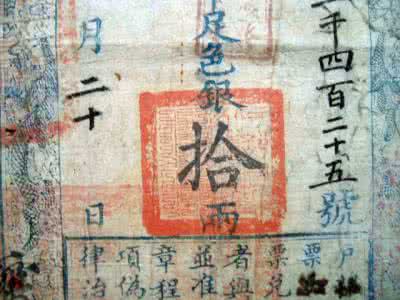 千四百二十五號
足色銀拾兩
月二十日
户
票
票兑
者與
並准
章程
項偽
律治